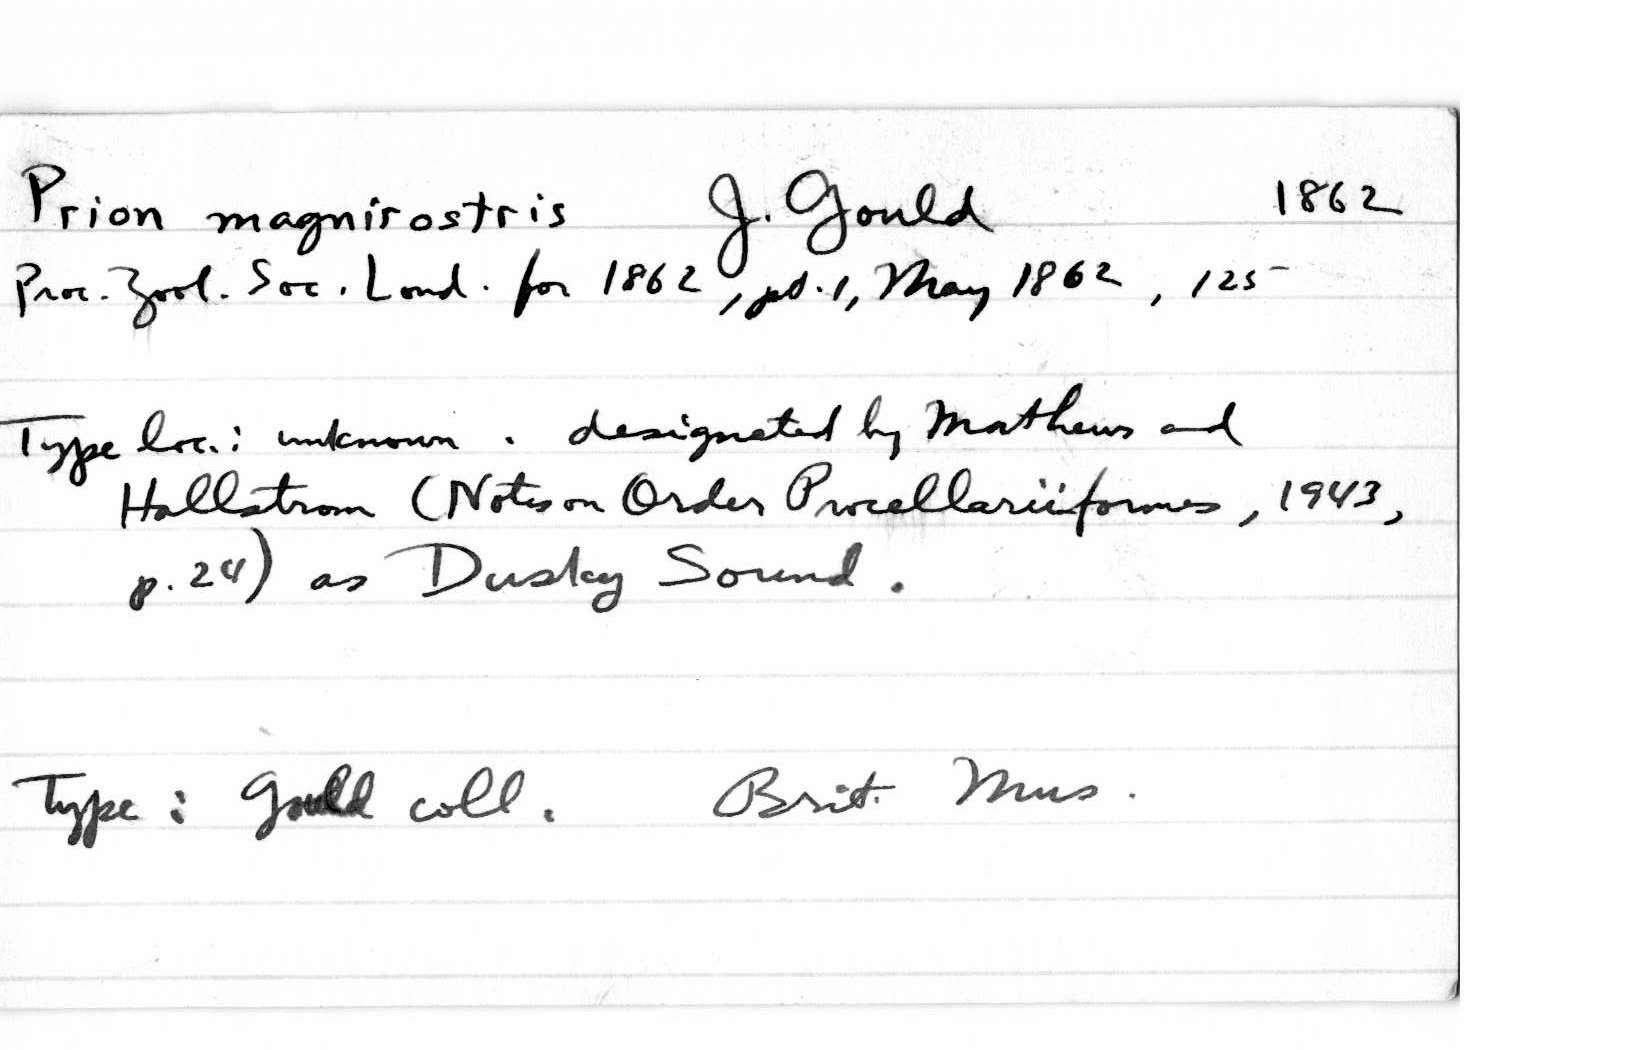 Prion magnirostris J. Gould 1862
Proc. Zool. Soc. Lond. for 1862, pt. 1, May 1862, 125
Type loc.: unknown. designated by Mathews and
Hallstrom (Notes on Order Procellariiformes, 1943,
p. 24) as Dusky Sound.
Type: Gould coll. Brit. Mus.